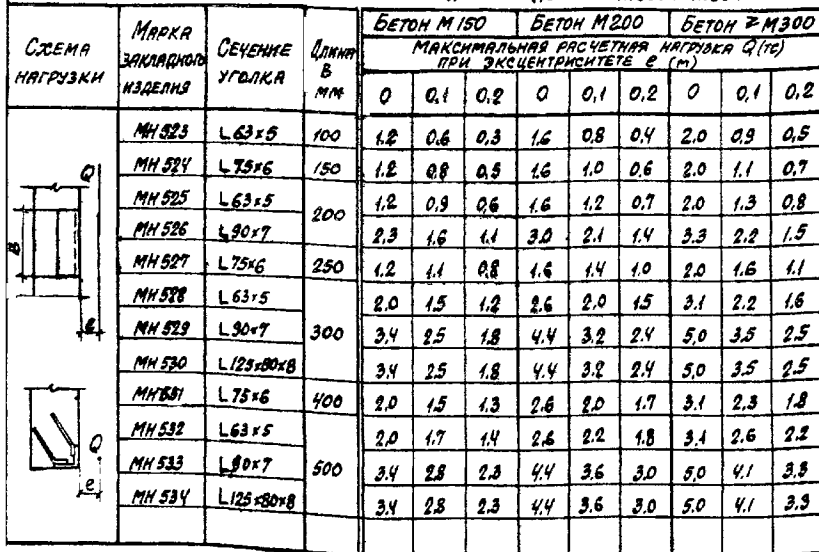 СХЕМА НАГРУЗКИ | МАРКА ЗАКЛАДНОГО ИЗДЕЛИЯ | СЕЧЕНИЕ УГОЛКА | ДЛИНА В ММ | БЕТОН М150 | БЕТОН М200 | БЕТОН ≥ М300
МАКСИМАЛЬНАЯ РАСЧЕТНАЯ НАГРУЗКА Q (тс) ПРИ ЭКСЦЕНТРИСИТЕТЕ е (м)
0 | 0,1 | 0,2 | 0 | 0,1 | 0,2 | 0 | 0,1 | 0,2
МН 523 | L 63х5 | 100 | 1.2 | 0.6 | 0.3 | 1.6 | 0.8 | 0.4 | 2.0 | 0.9 | 0,5
МН 524 | L 75х6 | 150 | 1.2 | 0.8 | 0.5 | 1.6 | 1.0 | 0.6 | 2.0 | 1.1 | 0,7
МН 525 | L 63х5 | 200 | 1.2 | 0,9 | 0,6 | 1.6 | 1.2 | 0.7 | 2.0 | 1.3 | 0,8
МН 526 | L 90х7 | 2.3 | 1.6 | 1.1 | 3.0 | 2.1 | 1.4 | 3.3 | 2.2 | 1.5
МН 527 | L 75х6 | 250 | 1.2 | 1.1 | 0.8 | 1.6 | 1.4 | 1.0 | 2.0 | 1.6 | 1.1
МН 528 | L 63х5 | 300 | 2.0 | 1.5 | 1.2 | 2.6 | 2.0 | 1.5 | 3.1 | 2.2 | 1.6
МН 529 | L 90х7 | 3,4 | 2.5 | 1.8 | 4.4 | 3.2 | 2.4 | 5,0 | 3.5 | 2.5
МН 530 | L 125х80х8 | 3.4 | 2.5 | 1.8 | 4.4 | 3.2 | 2.4 | 5,0 | 3.5 | 2.5
МН 531 | L 75х6 | 400 | 2.0 | 1.5 | 1.3 | 2.6 | 2.0 | 1.7 | 3.1 | 2.3 | 1.8
МН 532 | L 63х5 | 500 | 2,0 | 1.7 | 1.4 | 2.6 | 2.2 | 1.8 | 3.1 | 2.6 | 2.2
МН 533 | L 90х7 | 3.4 | 2.8 | 2.3 | 4.4 | 3.6 | 3.0 | 5,0 | 4.1 | 3.3
МН 534 | L 125х80х8 | 3.4 | 2.8 | 2.3 | 4.4 | 3.6 | 3.0 | 5.0 | 4.1 | 3.3
Q
В
е
Q
е